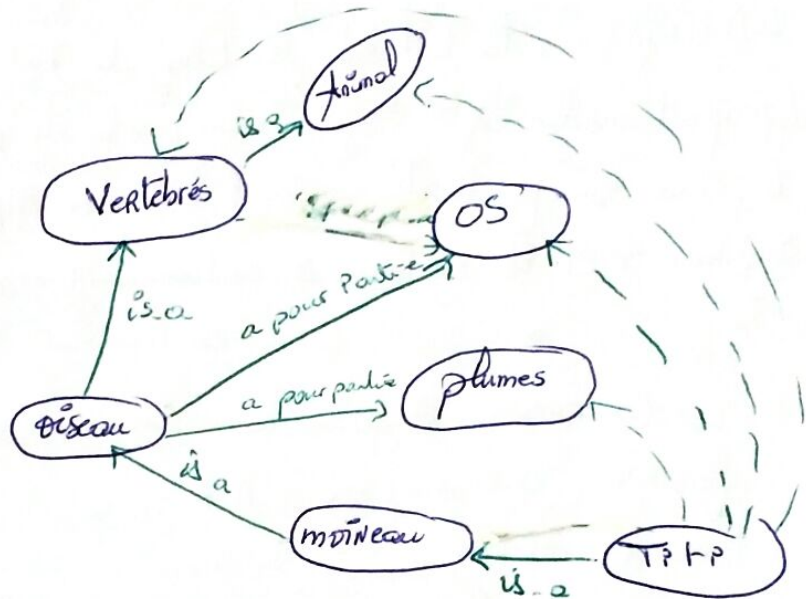 Animal
is a
Vertébrés
OS
is-a
a pour Partie
a pour partie
plumes
oiseau
is a
moineau
TiTi
is-a